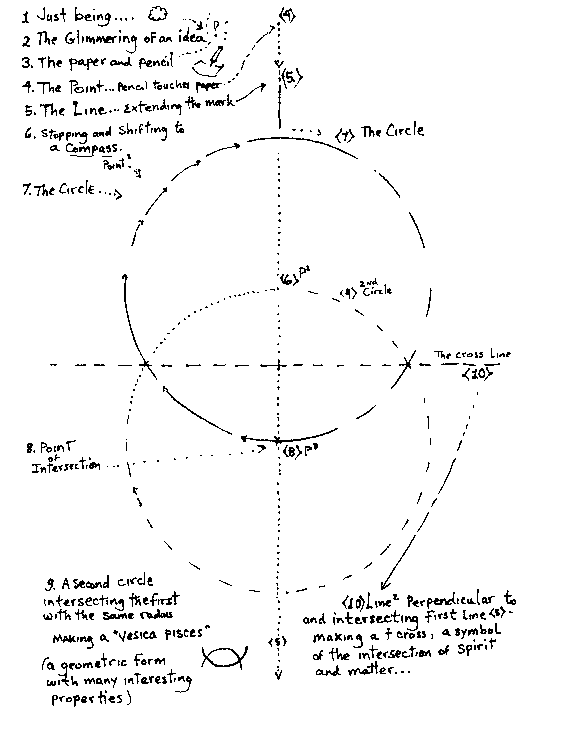 1 Just being....
2 The Glimmering of an idea
P
3. The paper and pencil
4. The Point... Pencil touches paper
5. The Line... Extending the mark
6. Stopping and Shifting to
a Compass.
Point²
7. The Circle....
<4>
<5>
<7> The Circle
<6> P²
<9> 2nd Circle
The cross Line
<10>
8. Point
of
Intersection
<8> P³
9. A second circle
intersecting the first
with the same radius
Making a "Vesica Pisces"
(a geometric form
with many interesting
properties)
<5>
<10> Line² Perpendicular to
and intersecting first Line <5>-
making a + cross, a symbol
of the intersection of Spirit
and matter...